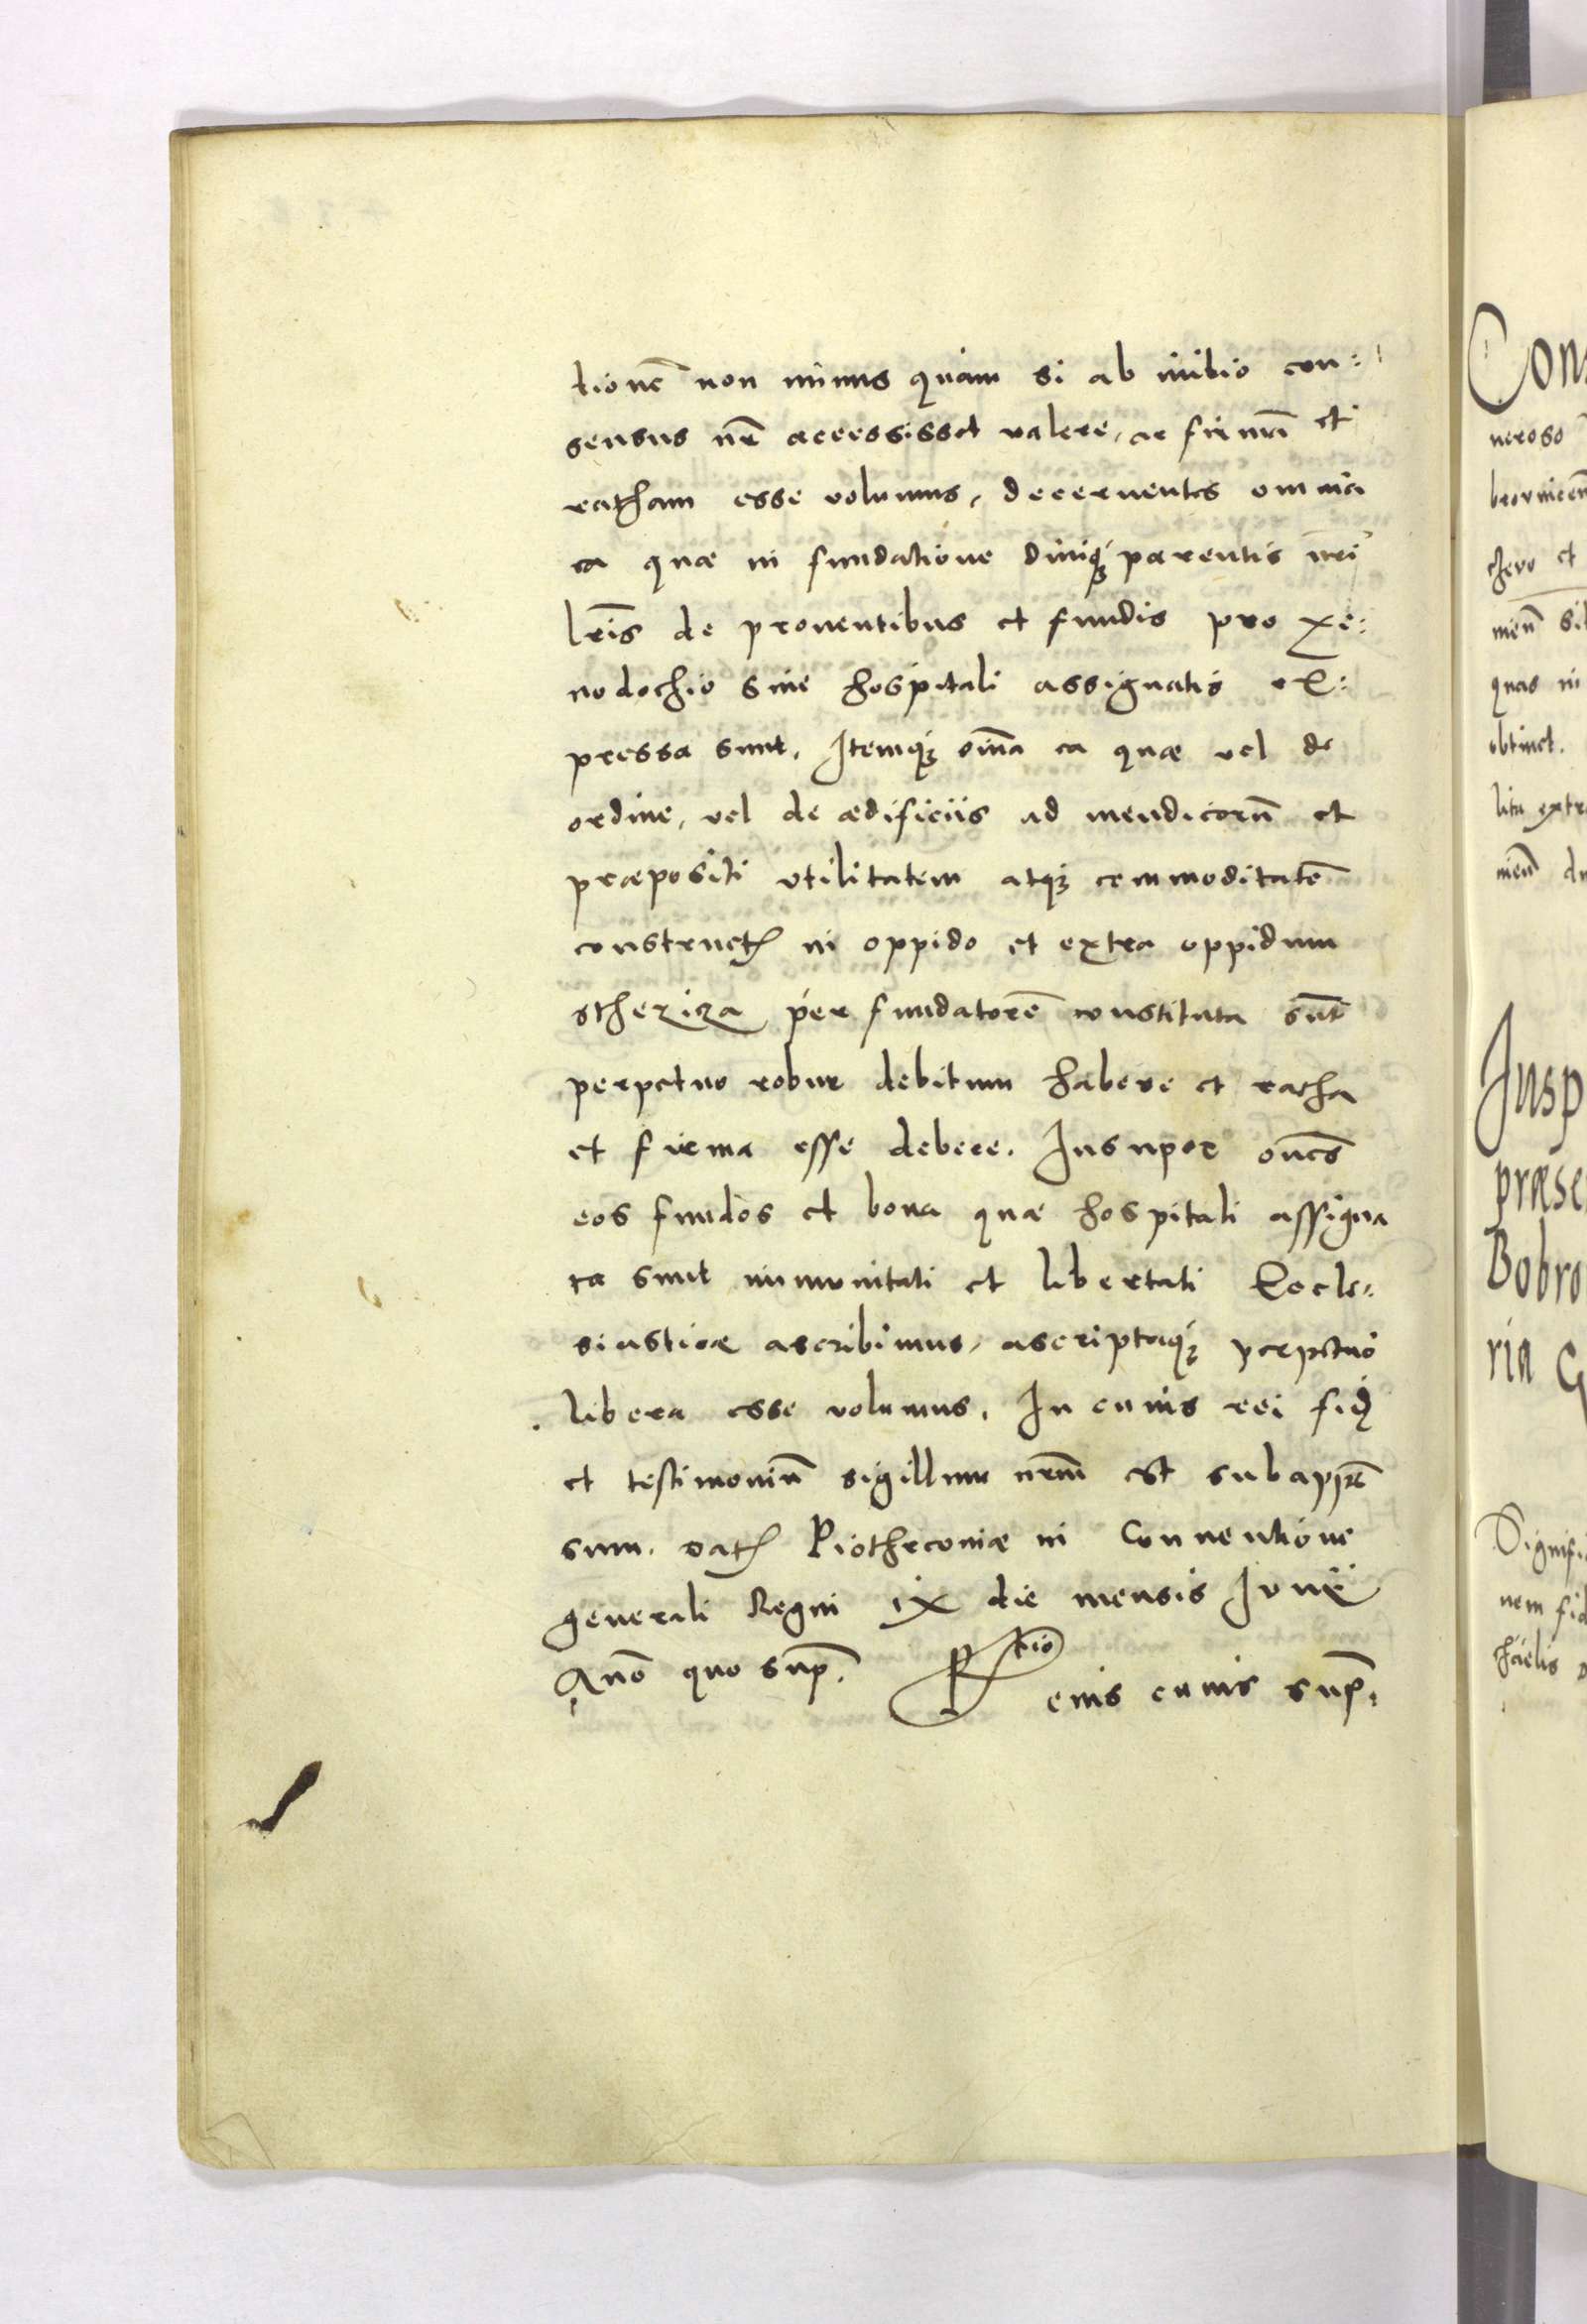 tionē non minus quàm si ab initio con:
sensus nr̄ accessisset valere, ac firmā et
ratham esse volumus, decernentes omnia
ea quae in fundatione diuiq́ꝫ parentis nr̄i
lr̄is de prouentibus et fundis pro xe:
nodochio siue hospitali assignatis ex:
pressa sunt. Itemqꝫ om̄a ea quae vel de
ordine, vel de aedificiis ad mendicorū et
praepositi vtilitatem atqꝫ commoditatē
construct in oppido et extra oppidum
per fundatorē constituta sūt
perpetuo robur debitum habere et ratha
et firma esse debere. Insuper oēs
eos fundos et bona quae hospitali assigna
ta sunt immunitati et libertati Eccle:
siasticae ascribimus, ascriptaqꝫ perpetuò
libera esse volumus. In cuius rei fid
et testimoniū sigillum nr̄m est subappre
sum. Dat Piotrcouiae in Conuentione
generali Regni ix die mensis Iunii
Anō quo sup. Rtio
eius cuius sup.
Con
neroso
beornicen
chero et
mēn sit
quas in
obtinet.
litu extra
mēn du
Insp
praese
Bobro
ria G
Signifi
nem fid
chaelis